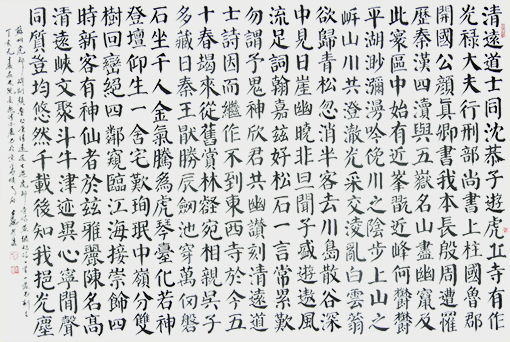 清遠道士同沈恭子遊虎丘寺有作
光祿大夫行刑部尚書上柱國魯郡
開國公顏真卿書我本長殷周遭罹
歷秦漢四瀆與五嶽名山盡幽竄及
此寰區中始有近峯翫近峰何鬱鬱
平湖渺瀰漫吟俛川之陰步上山之
岍山川共澄澈光采交淩亂白雲翁
欲歸青松忽消半客去川島散谷深
中見日崖幽曉非旦聞子盛遊遨風
流足詞翰嘉茲好松石一言常累歎
勿謂予鬼神欣君共幽讚刻清遠道
士詩因而繼作不到東西寺於今五
十春朅來從舊賞林壑宛相親吳子
多藏日秦王厭勝辰劍池穿萬仞磐
石坐千人金氣騰為虎琴臺化若神
登壇仰生一舍宅歎珣珉中嶺分雙
樹回巒絕四鄰窺臨江海接崇飾四
時新客有神仙者於茲雅麗陳名高
清遠峽文聚斗牛津迹異心寧間聲
同質豈均悠然千載後知我挹光塵